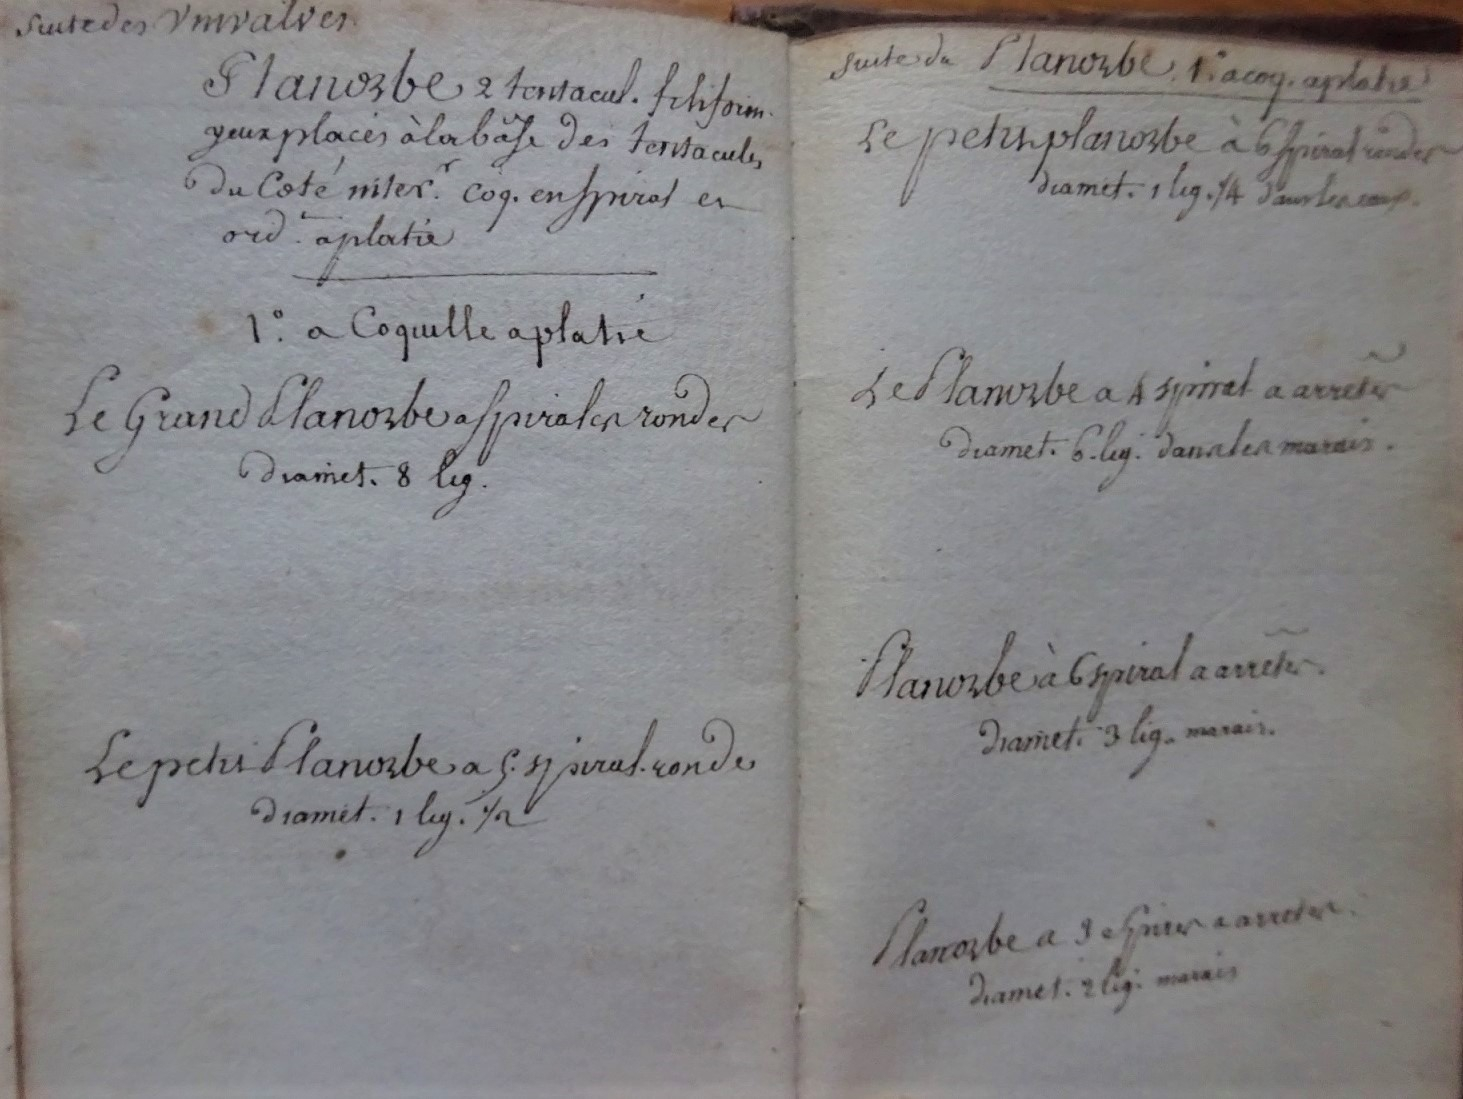 Suite des Univalves
Planorbe 2 tentacul. filiform.
yeux placés à la bâse des tentacules
du Coté inter.r coq. en spiral en
ord.re aplatie
1.° a Coquille aplatie
Le Grand Planorbe a spirales rondes
diamet. 8 lig.
Le petit Planorbe a 5. spiral. ronde
diamet. 1 lig. 1/2
Suite du Planorbe 1.° a coq. aplatie
Le petit planorbe à 6 spiral rondes
diamet. 1 lig. 1/4 dans les eaux.
Le Planorbe a 4 spiral a arretes
diamet. 6. lig. dans les marais.
Planorbe à 6 spiral a arrêtes.
diamet. 3 lig. marais.
Planorbe a 3 spires a arretes.
diamet. 2 lig. marais